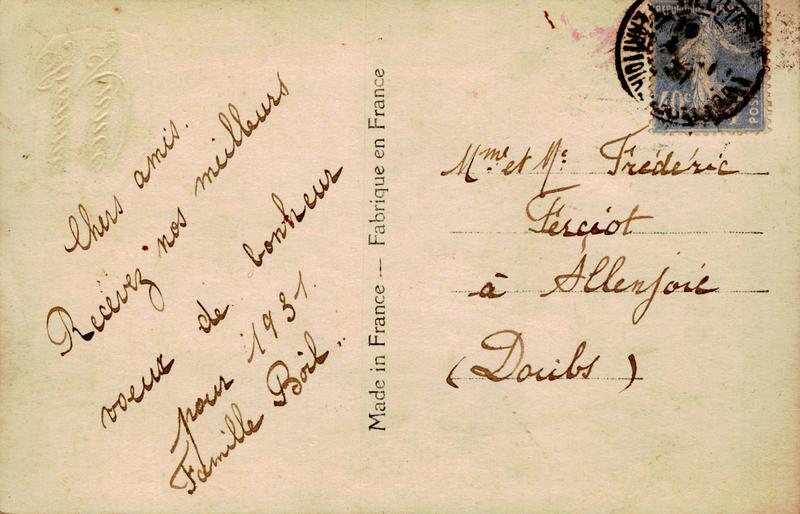 Chers amis.
Recevez nos meilleurs
voeux de bonheur
pour 1931.
Famille Boil.
Made in France — Fabrique en France
Mme et Mr Frédéric
Ferciot
à Allenjoie
(Doubs)
40c
POSTES